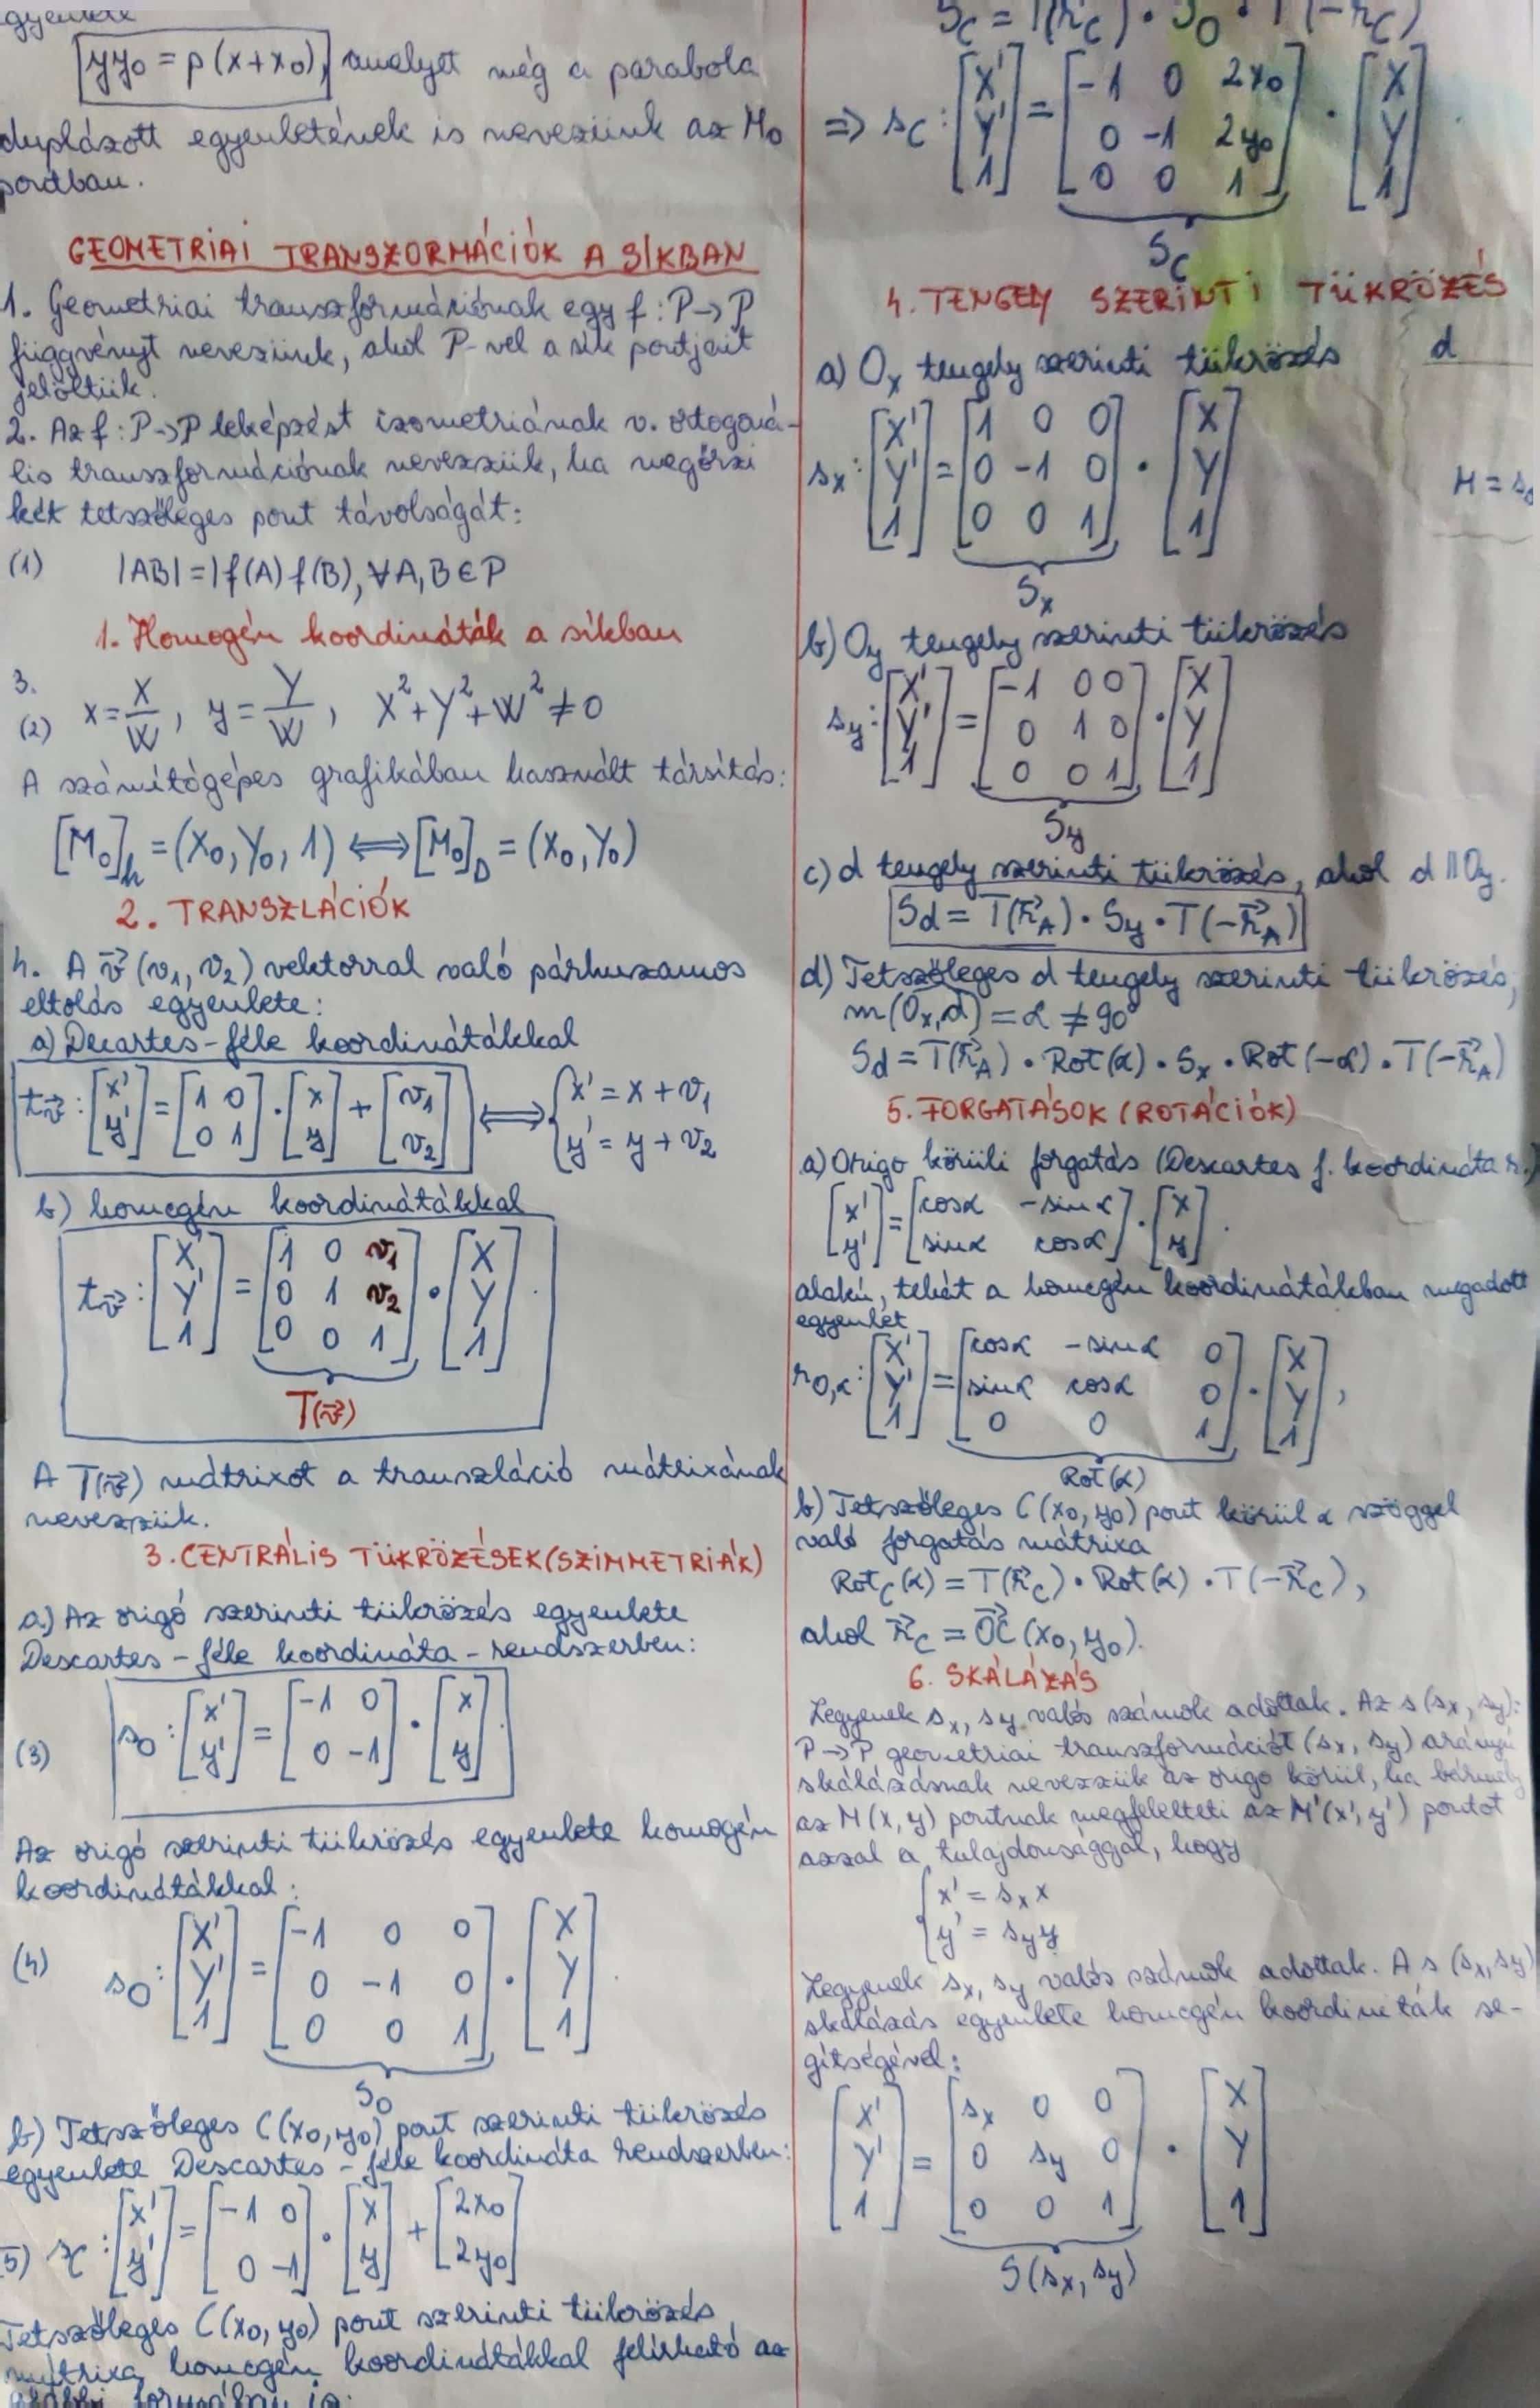 egyenlete
yy₀ = p(x+x₀), amelyet még a parabola
duplázott egyenletének is nevezünk az M₀
pontban.
GEOMETRIAI TRANSZFORMÁCIÓK A SÍKBAN
1. Geometriai transzformációnak egy f : P→P
függvényt nevezünk, ahol P-vel a sík pontjait
jelöltük.
2. Az f : P→P leképzést izometriának v. ortogoná-
lis transzformációnak nevezzük, ha megőrzi
két tetszőleges pont távolságát:
(1) |AB| = |f(A) f(B), ∀A, B ∈ P
1. Homogén koordináták a síkban
3.
(2) x = X/W, y = Y/W, X² + Y² + W² ≠ 0
A számítógépes grafikában használt társítás:
[M₀]h = (X₀, Y₀, 1) ⟺ [M₀]D = (X₀, Y₀)
2. TRANSZLÁCIÓK
4. A v⃗ (v₁, v₂) vektorral való párhuzamos
eltolás egyenlete:
a) Decartes-féle koordinátákkal
t v⃗ : [x' y'] = [1 0 ; 0 1] · [x y] + [v₁ v₂] ⟺ { x' = x + v₁ ; y' = y + v₂
b) homogén koordinátákkal
t v⃗ : [X' Y' 1] = [1 0 v₁ ; 0 1 v₂ ; 0 0 1] · [X Y 1]
T(v⃗)
A T(v⃗) mátrixot a transzláció mátrixának
nevezzük.
3. CENTRÁLIS TÜKRÖZÉSEK (SZIMMETRIÁK)
a) Az origó szerinti tükrözés egyenlete
Descartes-féle koordináta-rendszerben:
(3) s₀ : [x' y'] = [-1 0 ; 0 -1] · [x y].
Az origó szerinti tükrözés egyenlete homogén
koordinátákkal:
(4) s₀ : [X' Y' 1] = [-1 0 0 ; 0 -1 0 ; 0 0 1] · [X Y 1].
S₀
b) Tetszőleges C(x₀, y₀) pont szerinti tükrözés
egyenlete Descartes-féle koordináta rendszerben:
5) sc : [x' y'] = [-1 0 ; 0 -1] · [x y] + [2x₀ 2y₀]
Tetszőleges C(x₀, y₀) pont szerinti tükrözés
mátrixa homogén koordinátákkal felírható az
alábbi formában is:
Sc = T(r⃗c) · S₀ · T(-r⃗c)
⇒ sc : [X' Y' 1] = [-1 0 2x₀ ; 0 -1 2y₀ ; 0 0 1] · [X Y 1].
Sc
4. TENGELY SZERINTI TÜKRÖZÉS
a) Ox tengely szerinti tükrözés
d
sx : [X' Y' 1] = [1 0 0 ; 0 -1 0 ; 0 0 1] · [X Y 1]
Sx
b) Oy tengely szerinti tükrözés
sy : [X' Y' 1] = [-1 0 0 ; 0 1 0 ; 0 0 1] · [X Y 1]
Sy
c) d tengely szerinti tükrözés, ahol d ∥ Oy.
Sd = T(r⃗A) · Sy · T(-r⃗A)
d) Tetszőleges d tengely szerinti tükrözés,
m(Ox, d) = α ≠ 90°
Sd = T(r⃗A) · Rot(α) · Sx · Rot(-α) · T(-r⃗A)
5. FORGATÁSOK (ROTÁCIÓK)
a) Origo körüli forgatás (Descartes f. koordináta r.)
[x' y'] = [cosα -sinα ; sinα cosα] · [x y].
alakú, tehát a homogén koordinátákban megadott
egyenlet
r₀,α : [X' Y' 1] = [cosα -sinα 0 ; sinα cosα 0 ; 0 0 1] · [X Y 1],
Rot(α)
b) Tetszőleges C(x₀, y₀) pont körül α szöggel
való forgatás mátrixa
Rotc(α) = T(r⃗c) · Rot(α) · T(-r⃗c),
ahol r⃗c = OC⃗ (x₀, y₀).
6. SKÁLÁZÁS
Legyenek sx, sy valós számok adottak. Az s(sx, sy):
P→P geometriai transzformációt (sx, sy) arányú
skálázásnak nevezzük az origo körül, ha bármely
az M(x, y) pontnak megfelelteti az M'(x', y') pontot
azzal a tulajdonsággal, hogy
{ x' = sx x
y' = sy y
Legyenek sx, sy valós számok adottak. A s (sx, sy)
skálázás egyenlete homogén koordináták se-
gítségével:
[X' Y' 1] = [sx 0 0 ; 0 sy 0 ; 0 0 1] · [X Y 1]
S(sx, sy)